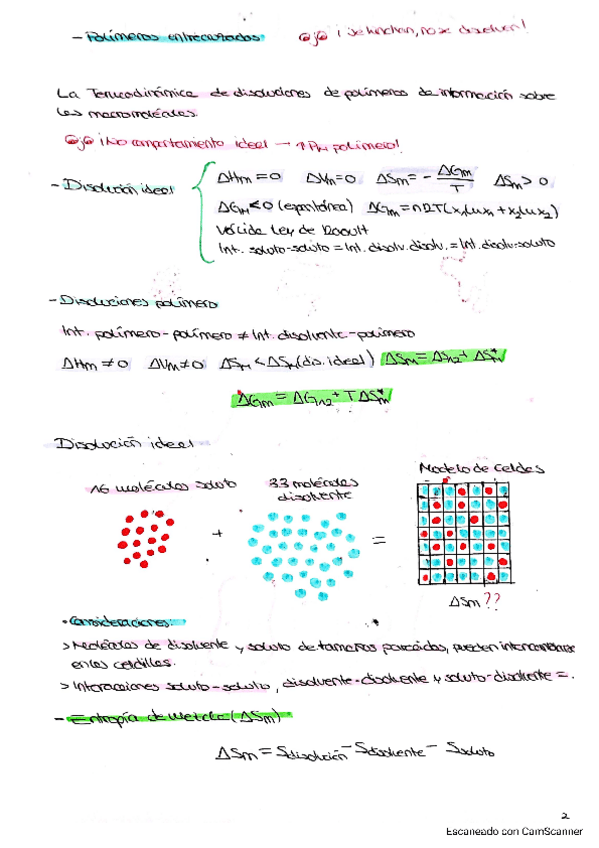 - Polímeros entrecruzados: Ojo ¡se hinchan, no se disuelven!
La Termodinámica de disoluciones de polímeros da información sobre
las macromoléculas.
Ojo ¡No comportamiento ideal → ↑PM polímero!
- Disolución ideal
ΔHm = 0 ΔVm = 0 ΔSm = - ΔGm/T ΔSm > 0
ΔGm < 0 (espontánea) ΔGm = nRT(x₁Lnx₁ + x₂Lnx₂)
Válida Ley de Raoult
Int. soluto-soluto = Int. disolv. disolv. = Int. disolv-soluto
- Disoluciones polímero
Int. polímero-polímero ≠ Int. disolvente-polímero
ΔHm ≠ 0 ΔVm ≠ 0 ΔSm < ΔSm (dis. ideal)
Disolución ideal
Modelo de Celdas
16 moléculas soluto 33 moléculas
disolvente
+ =
ΔSm??
• Consideraciones:
> Moléculas de disolvente y soluto de tamaños parecidos, pueden intercambiarse
en las celdillas.
> Interacciones soluto-soluto, disolvente-disolvente y soluto-disolvente =.
- Entropía de Mezcla (ΔSm):
ΔSm = Sdisolución - Sdisolvente - Ssoluto
2
Escaneado con CamScanner